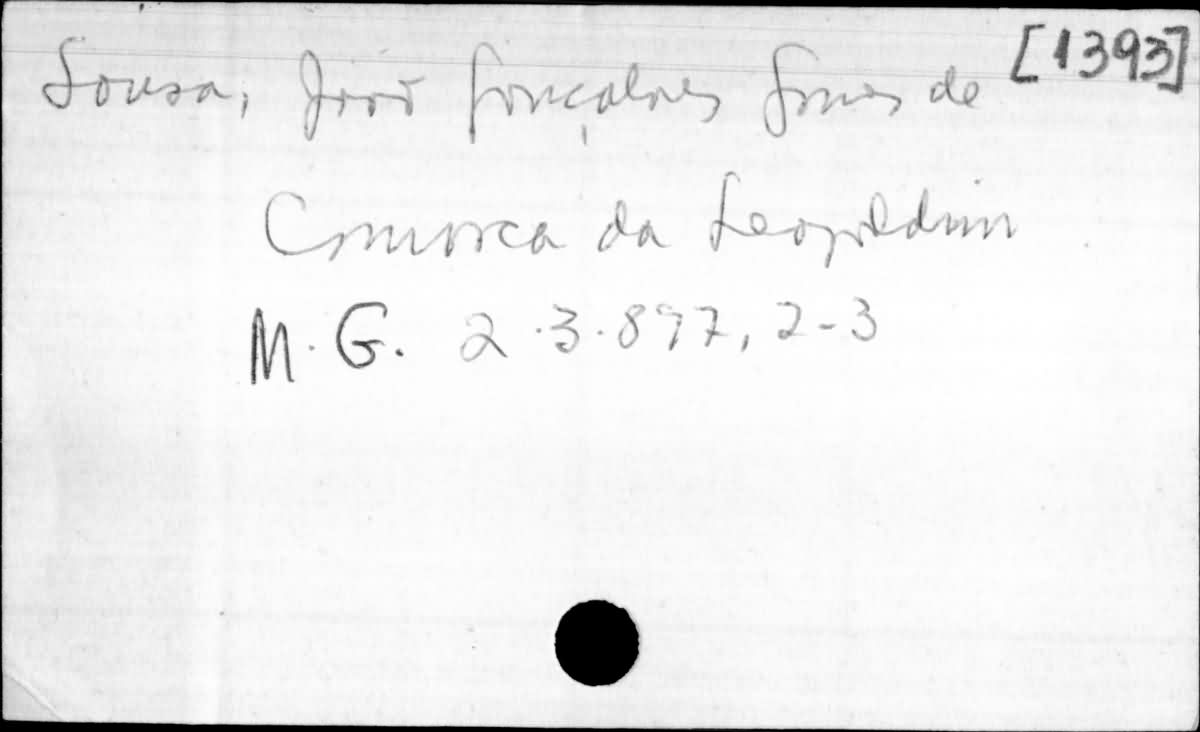 Sousa, João Gonçalves Gomes de [1393]
Comarca da Leopoldina
M. G. 2.3.897, 2-3